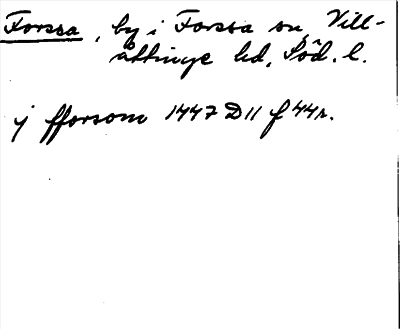 Forssa, by i Forssa sn, Vill-
åttinge hd, Söd. l.
j fforsom 1447 D11 f 44r.